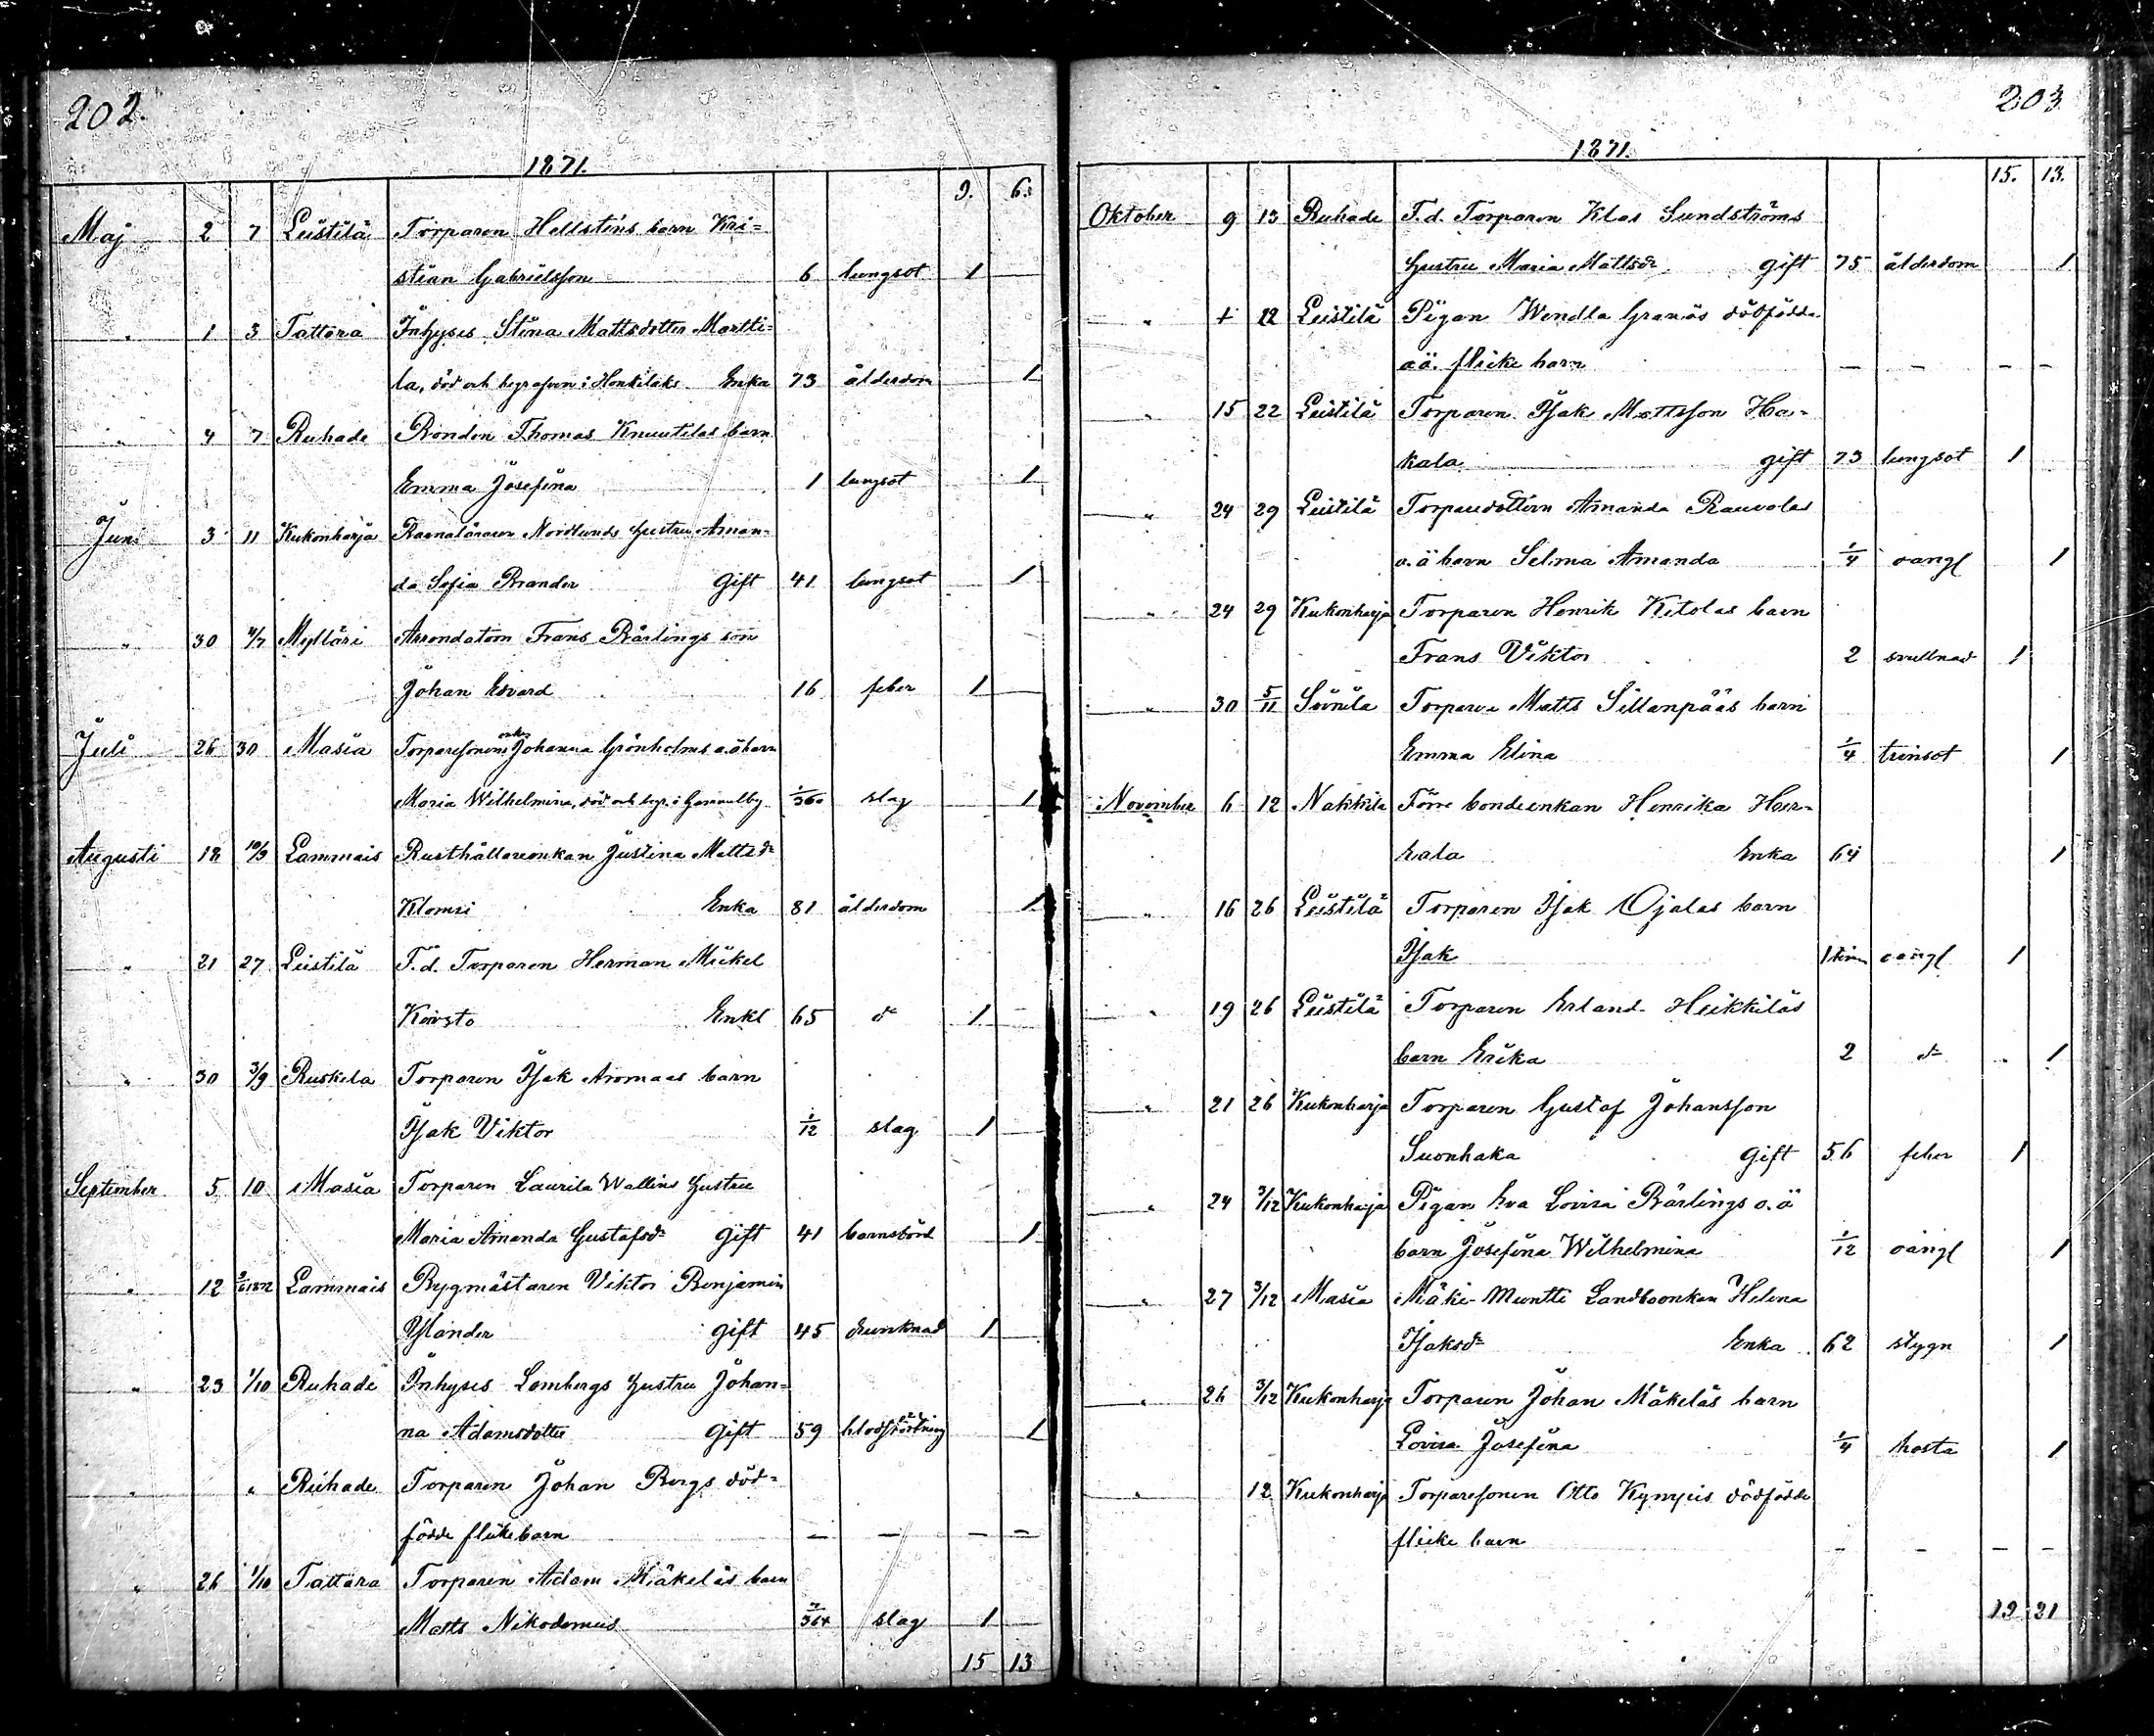 202.
1871.
9. 6.
Maj 2 7 Leistilä Torparen Hellsténs barn Kri=
stian Gabrielsson 6 lungsot 1
" 1 3 Tattara Inhyses Stina Mattsdotter Martti=
la, död och begrafven i Honkilaks Enka 73 ålderdom 1
" 4 7 Ruhade Bonden Thomas Knuutilas barn
Emma Josefina 1 lungsot 1
Juni 3 11 Kukonharja Nordlunds hustru Aman=
da Sofia Brander Gift 41 lungsot 1
" 30 4/7 Mylläri Arrendatorn Frans Bärlings son
Johan Edvard 16 feber 1
Juli 26 30 Masia Torparesonens enkas Johanna Grönholms o.ä barn
Maria Wilhelmina, död och begr. i Gammelby 1/360 slag 1
Augusti 18 10/9 Lammais Rusthållareenkan Justina Mattsdr
Klomsi Enka 81 ålderdom 1
" 21 27 Leistilä F.d. Torparen Herman Mickel
Koivsto Enkl 65 do 1
" 30 3/9 Ruskela Torparen Isak Aromaas barn
Isak Viktor 1/12 slag 1
September 5 10 Masia Torparen Laurila Wallins hustru
Maria Amanda Gustafsdr Gift 41 barnsbörd 1
" 12 1872 Lammais Bygmästaren Viktor Benjamin
Ylander gift 45 drunknad 1
" 23 1/10 Ruhade Inhyses Lombergs hustru Johan=
na Adamsdotter Gift 59 blodstörtning 1
" " Ruhade Torparen Johan Bergs död=
födde flickebarn — — — —
" 26 1/10 Tattara Torparen Adam Mäkeläs barn
Matts Nikodemus 2/364 slag 1
15 13
203
1871.
15. 13.
Oktober 9 13 Ruhade F.d. Torparen Klas Sundströms
hustru Maria Mattsdr gift 75 ålderdom 1
" + 22 Leistilä Pigan Wendla Granös dödfödda
oä. flicke barn — — — —
" 15 22 Leistilä Torparen Isak Mattsson Ha=
kala gift 73 lungsot 1
" 24 29 Leistilä Torparedottern Amanda Rauvolas
o.ä barn Selma Amanda 1/4 oangl 1
" 24 29 Kukonharja Torparen Henrik Kitolas barn
Frans Viktor 2 svullnad 1
" 30 5/11 Soinila Torparen Matts Sillanpääs barn
Emma Elina 1/4 trinsot 1
November 6 12 Nakkila Förre bondeenkan Henrika Her=
kala Enka 64 1
" 16 26 Leistilä Torparen Isak Ojalas barn
Isak 1 tim oangl 1
" 19 26 Leistilä Torparen Erland Heikkiläs
barn Erika 2 do 1
" 21 26 Kukonharja Torparen Gustaf Johansson
Suonhaka Gift 56 feber 1
" 24 3/12 Kukonharja Pigan Eva Lovisa Bärlings o.ä
barn Josefina Wilhelmina 1/12 oangl 1
" 27 3/12 Masia Mäki-Muntti Landboenkan Helena
Isaksdr Enka 62 stygn 1
" 26 3/12 Kukonharja Torparen Johan Mäkeläs barn
Lovisa Josefina 1/4 hosta 1
" 12 Kukonharja Torparesonen Otto Kynypis dödfödde
flicke barn — — — —
19 21